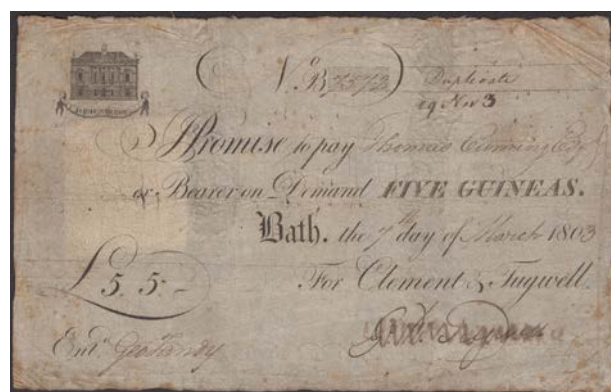 No B 7572 Duplicate
19 Nov 3
I Promise to pay Thomas Cunning Esq
or Bearer on Demand FIVE GUINEAS.
Bath. the 7th day of March 1803
For Clement & Tugwell.
£5. 5: -
Entd. Geo